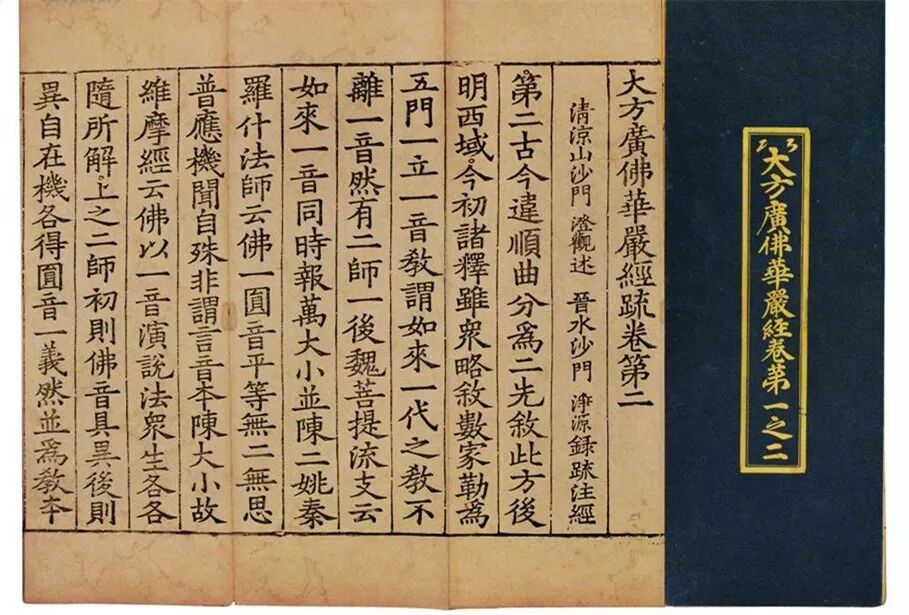 大方廣佛華嚴經疏卷第二
清涼山沙門 澄觀述 晉水沙門 淨源録疏注經
第二古今違順曲分爲二先敘此方後
明西域今初諸釋雖衆略敘數家勒爲
五門一立一音教謂如來一代之教不
離一音然有二師一後魏菩提流支云
如來一音同時報萬大小並陳二姚秦
羅什法師云佛一圓音平等無二無思
普應機聞自殊非謂言音本陳大小故
維摩經云佛以一音演說法衆生各各
隨所解上之二師初則佛音具異後則
異自在機各得圓音一義然並爲教本
大方廣佛華嚴經卷第一之二